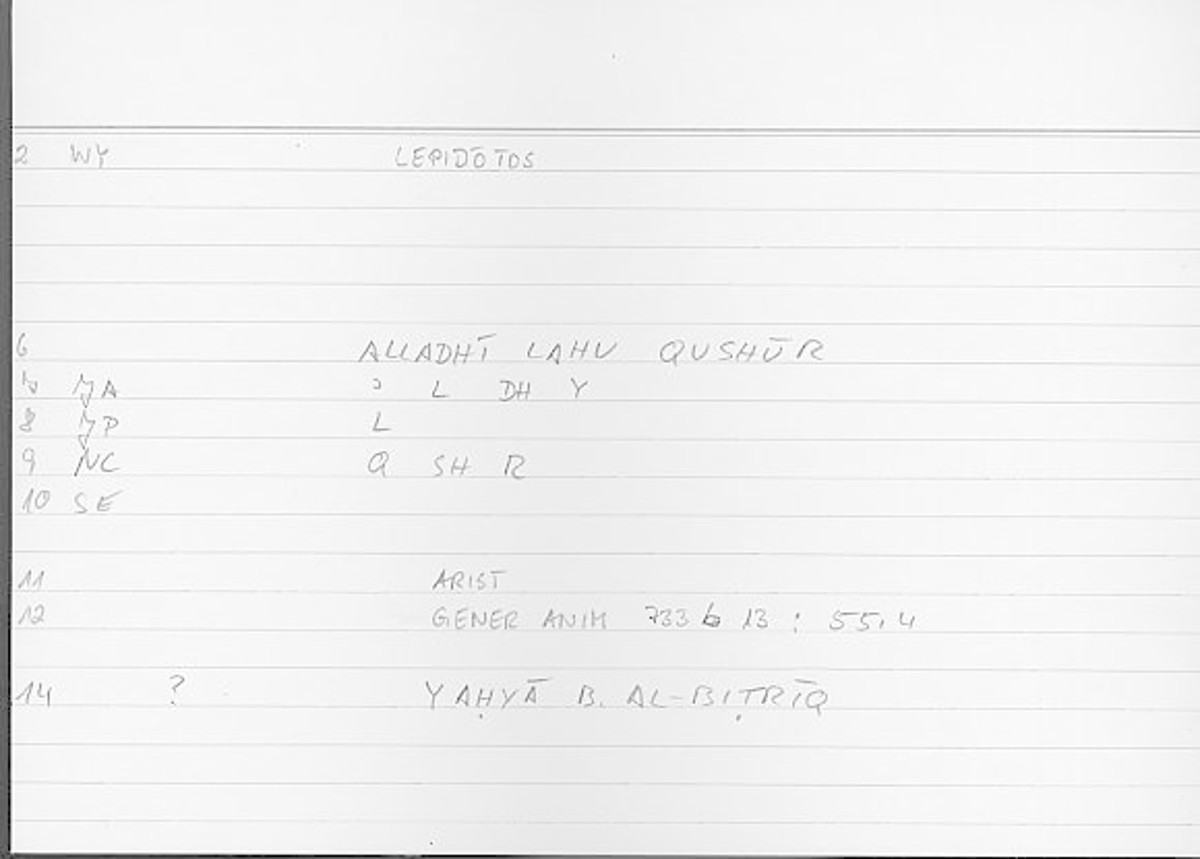 2 WY LEPIDŌTOS
6 ALLADHĪ LAHU QUSHŪR
A ʾ L DH Y
8 P L
9 NC Q SH R
10 SE
11 ARIST
12 GENER ANIM 733 b 13 : 55,4
14 ? YAḤYĀ B. AL-BIṬRĪQ